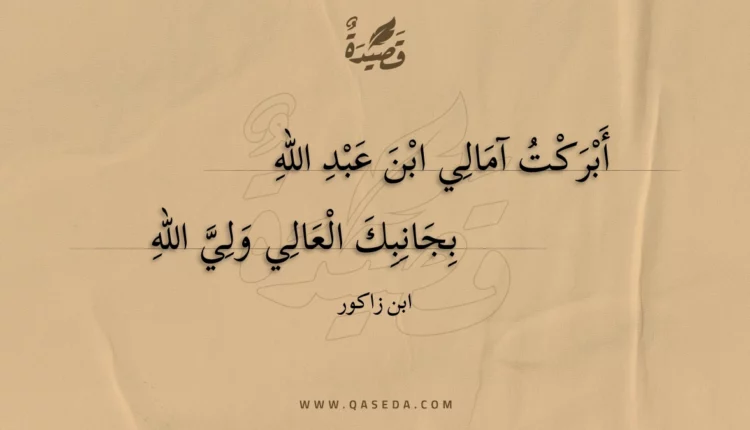 قَصِيْدَةٌ
أَبْرَكْتُ آمَالِي ابْنَ عَبْدِ اللهِ
بِجَانِبِكَ الْعَالِي وَلِيَّ اللهِ
ابن زاكور
WWW.QASEDA.COM